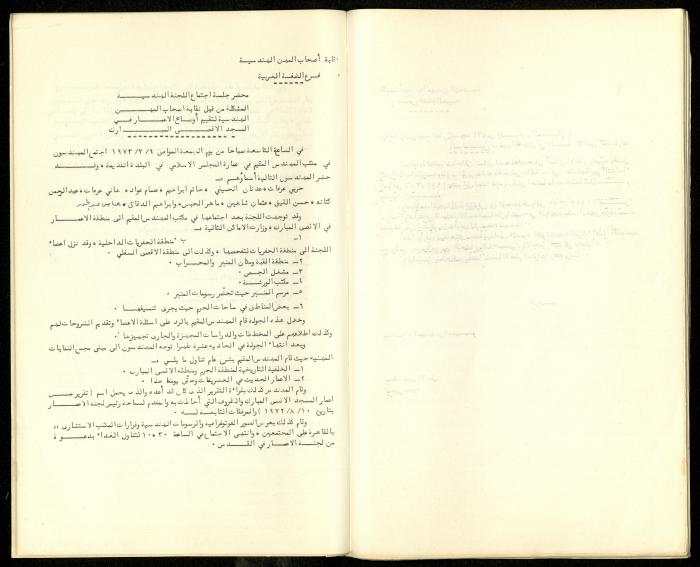 نقابة أصحاب المهن الهندسية
فرع الضفة الغربية
محضر جلسة اجتماع اللجنة الهندسية
المشكلة من قبل نقابة اصحاب المهن
الهندسية لتقييم أوضاع الاعمار في
المسجد الاقصى المبارك
في الساعة التاسعة صباحا من يوم الجمعة الموافق ٩/ ٣/ ١٩٧٣ اجتمع المهندسون
في مكتب المهندس المقيم في عمارة المجلس الاسلامي في البلدة القديمة ، وقد
حضر المهندسون التالية أسماؤهم :-
حربي عرفات ، عدنان الحسيني ، حاتم ابراهيم ، عصام عواد ، هاني عرفات ، عبدالرحمن
كتانه ، حسن القيق ، عثمان شاهين ، ماهر الحبس ، وابراهيم الدقاق ،
وقد توجهت اللجنة بعد اجتماعها في مكتب المهندس المقيم الى منطقة الاعمار
في الاقصى المبارك ، وزارت الاماكن التالية :-
١- منطقة الحفريات الداخلية ، وقد نزل اعضاء
اللجنة الى منطقة الحفريات لتفحصها ، وكذلك الى منطقة الاقصى السفلي .
٢- منطقة القبة ومكان المنبر والمحراب .
٣- مشغل الجص .
٤- مكتب الورشة .
٥- مرسم المنبر حيث تحضر رسومات المنبر .
٦- بعض المناطق في ساحات الحرم حيث يجرى تنسيقها .
وخلال هذه الجولة قام المهندس المقيم بالرد على اسئلة الاعضاء وتقديم الشروحات لهم
وكذلك اطلاعهم على المخططات والدراسات المجهزة والجارى تجهيزها .
وبعد انتهاء الجولة في الحاديه عشرة ظهرا توجه المهندسون الى مبنى مجمع النقابات
المهنية حيث قام المهندس المقيم بشرح عام تناول ما يلي :-
١- الخلفية التاريخية لمنطقة الحرم ومنطقة الاقصى المبارك .
٢- الاعمار الحديث في العشرينات وحتى يومنا هذا .
وقام المهندس كذلك بقراءة التقرير الذى كان قد أعده والذى يحمل اسم ( تقرير عن
اعمار المسجد الاقصى المبارك والظروف التي أحاطت به والمقدم لسماحة رئيس لجنة الاعمار
بتاريخ ١٠/ ٨/ ١٩٧٢ ) والمرفقات التابعة له .
وقام كذلك بعرض الصور الفوتوغرافية والرسومات الهندسية وقرارات المكتب الاستشارى
بالقاهرة على المجتمعين ، وانتهى الاجتماع في الساعة ٣٠ر١٠ لتناول الغداء بدعوة
من لجنة الاعمار في القدس .